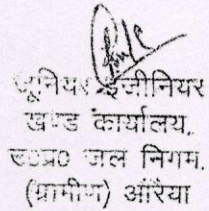 जूनियर इंजीनियर
खण्ड कार्यालय,
उ०प्र० जल निगम.
(ग्रामीण) औरैया